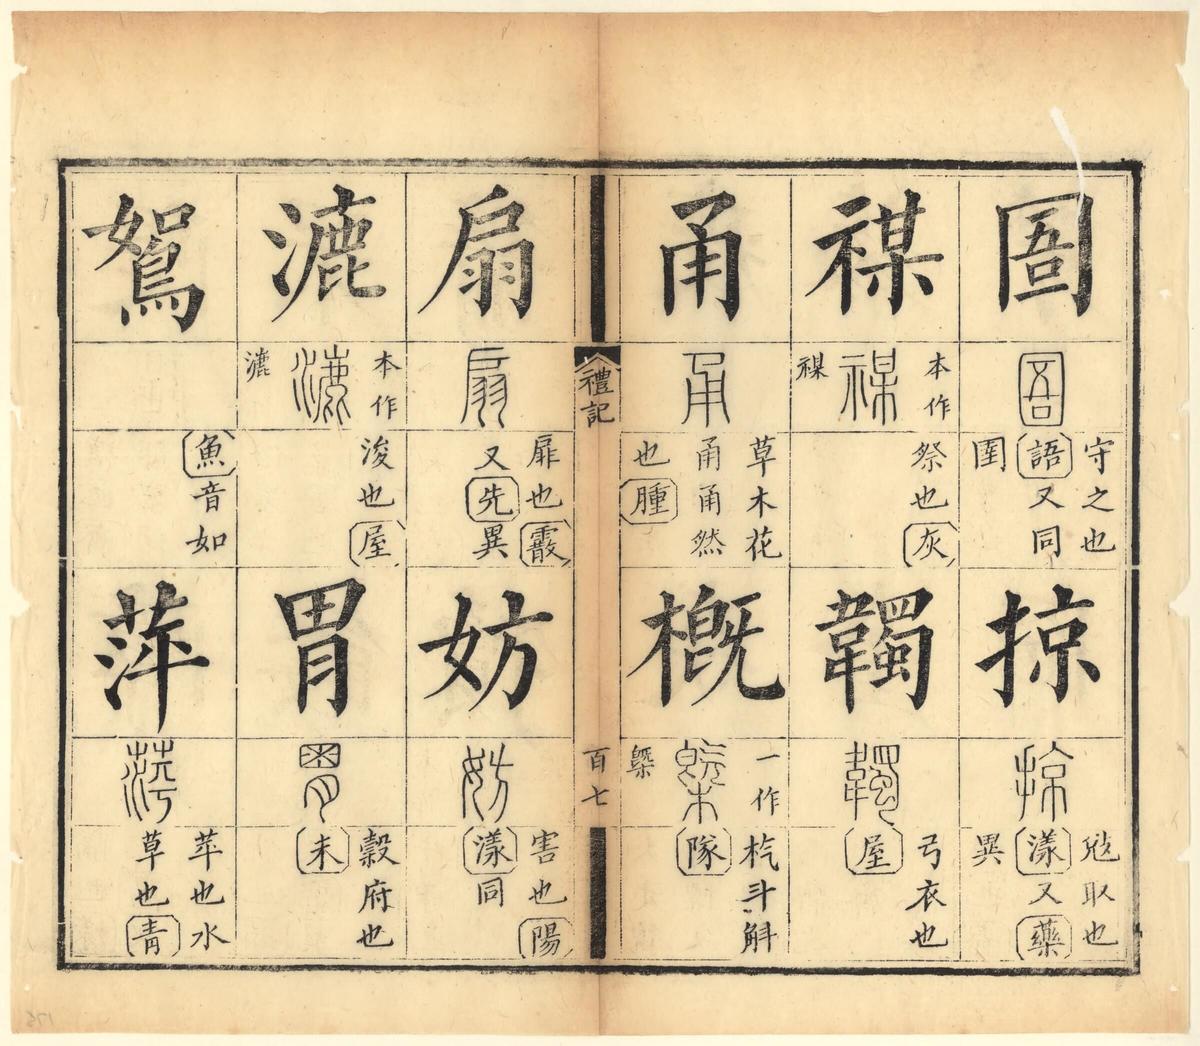 圄
圄
守之也
語又同
圉
掠
掠
劫取也
漾又藥
異
禖
本作
禖
禖
祭也灰
韣
韣
弓衣也
屋
甬
甬
草木花
甬甬然
也腫
概
一作
槩
槩
杚斗斛
隊
禮記
百七
扇
扇
扉也霰
又先異
妨
妨
害也陽
漾同
漉
本作
漉
漉
浚也屋
胃
胃
穀府也
未
鴽
魚音如
蓱
蓱
苹也水
草也青